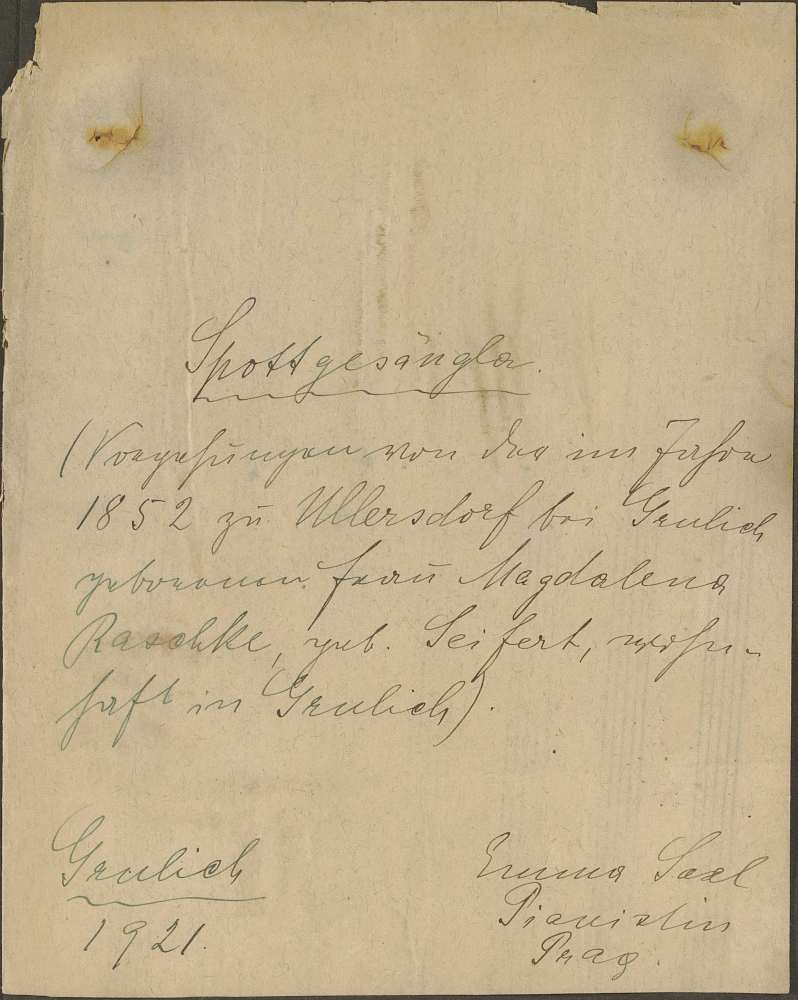 Spottgesängla.
(Vorgesungen von der im Jahre
1852 zu Ullersdorf bei Grulich
geborenen Frau Magdalena
Raschke, geb. Seifert, wohn-
haft in Grulich).
Grulich
1921.
Emma Saxl
Pianistin
Prag.